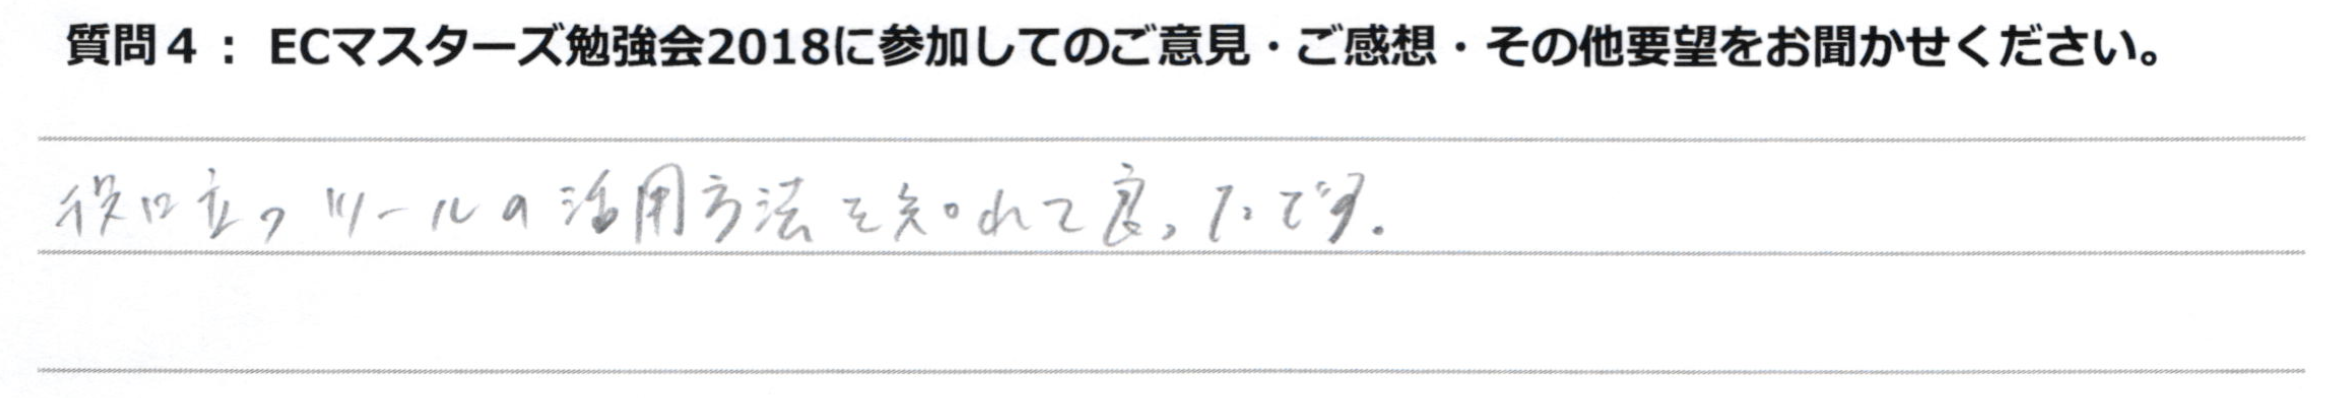 質問４： ECマスターズ勉強会2018に参加してのご意見・ご感想・その他要望をお聞かせください。
役に立つツールの活用方法を知れて良ったです.